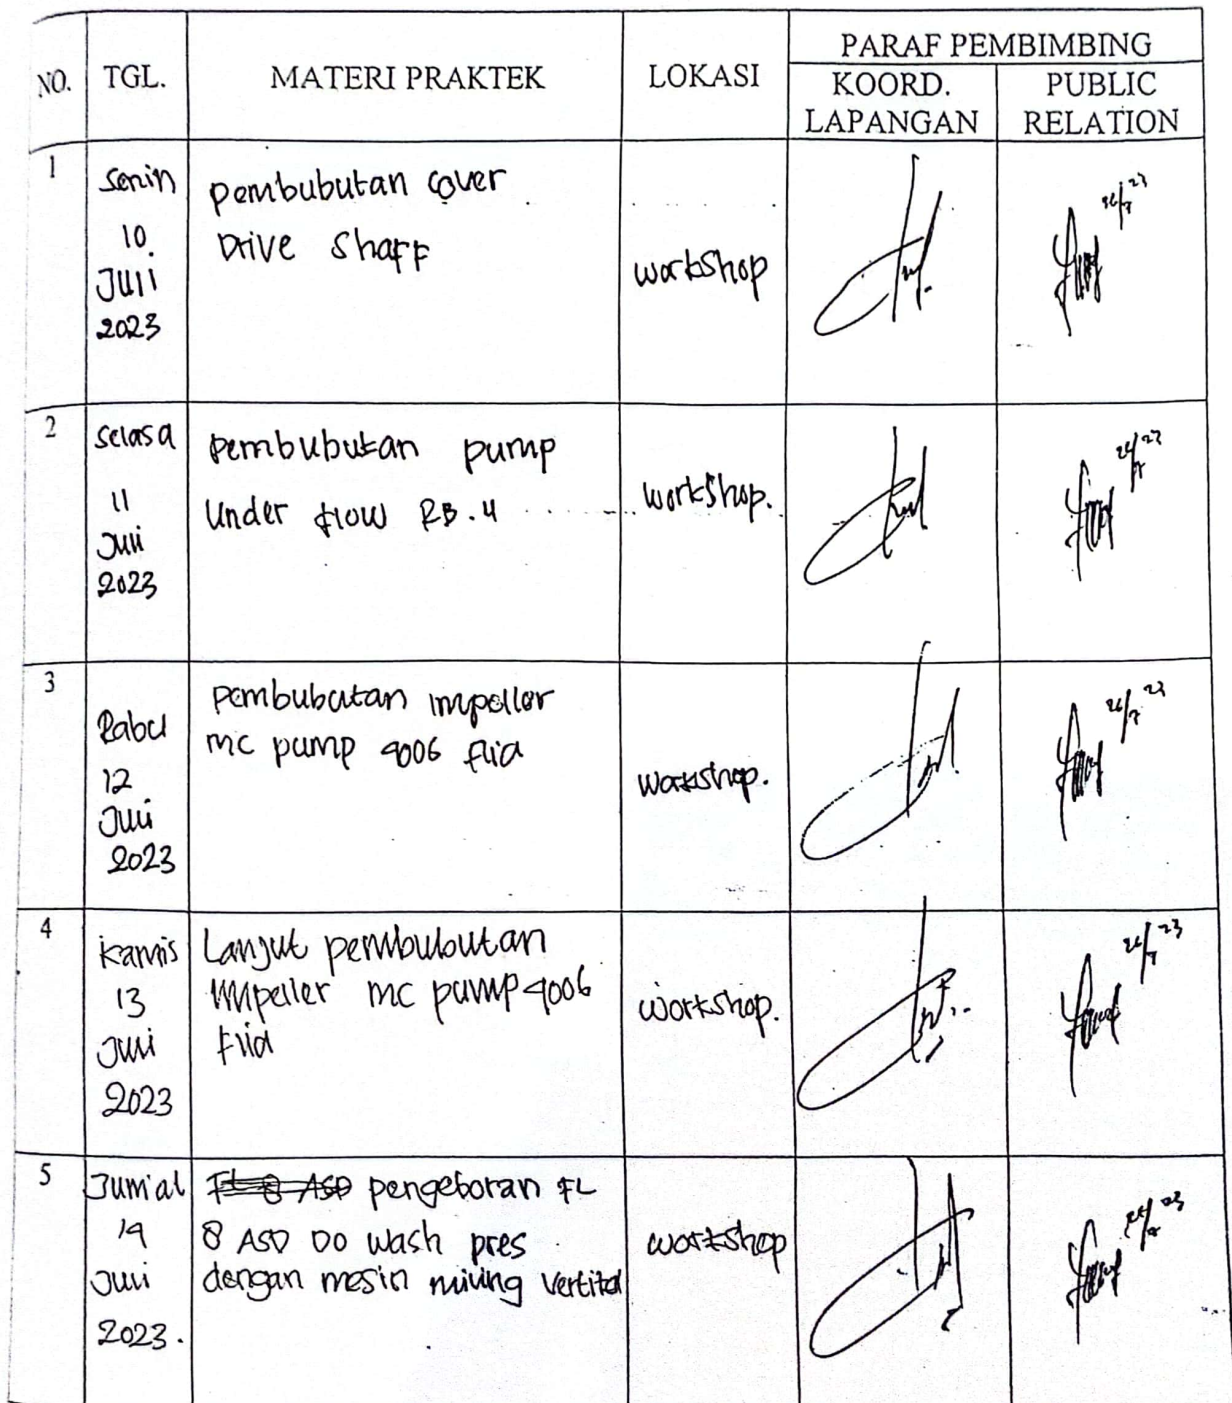 NO. TGL. MATERI PRAKTEK LOKASI PARAF PEMBIMBING
KOORD. LAPANGAN PUBLIC RELATION
1
Senin
10
Juli
2023
pembubutan cover
Drive Shaff
workshop
26/7 23
2
Selasa
11
Juli
2023
pembubutan pump
Under flow RB.4
workshop.
26/7 23
3
Rabu
12
Juli
2023
pembubutan impeller
mc pump 4006 flid
workshop.
26/7 23
4
Kamis
13
Juli
2023
Lanjut pembubutan
impeller mc pump 4006
flid
workshop.
26/7 23
5
Jum'at
14
Juli
2023.
FL 8 ASD pengeboran FL
8 ASD DO wash pres
dengan mesin miling vertital
workshop
26/7 23